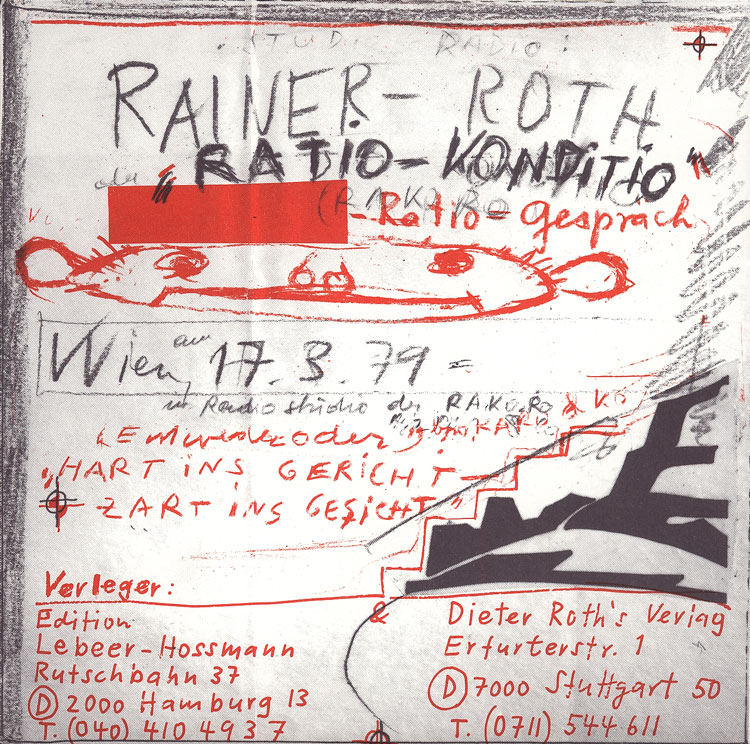 : STUDI RADIO :
RAINER – ROTH
die „RATIO – KONDITIO"
(RAKARO
– Ratio – Gespräch
Wien, am 17. 3. 79 =
im Radiostudio der RAKARO
(Entwederoder)
„HART iNS GERiCHT –
ZART iNS GESiCHT"
Verleger:
Edition
Lebeer-Hossmann
Rutschbahn 37
(D) 2000 Hamburg 13
T. (040) 410 49 3 7
&
Dieter Roth's Verlag
Erfurterstr. 1
(D) 7000 Stuttgart 50
T. (0711) 544 611